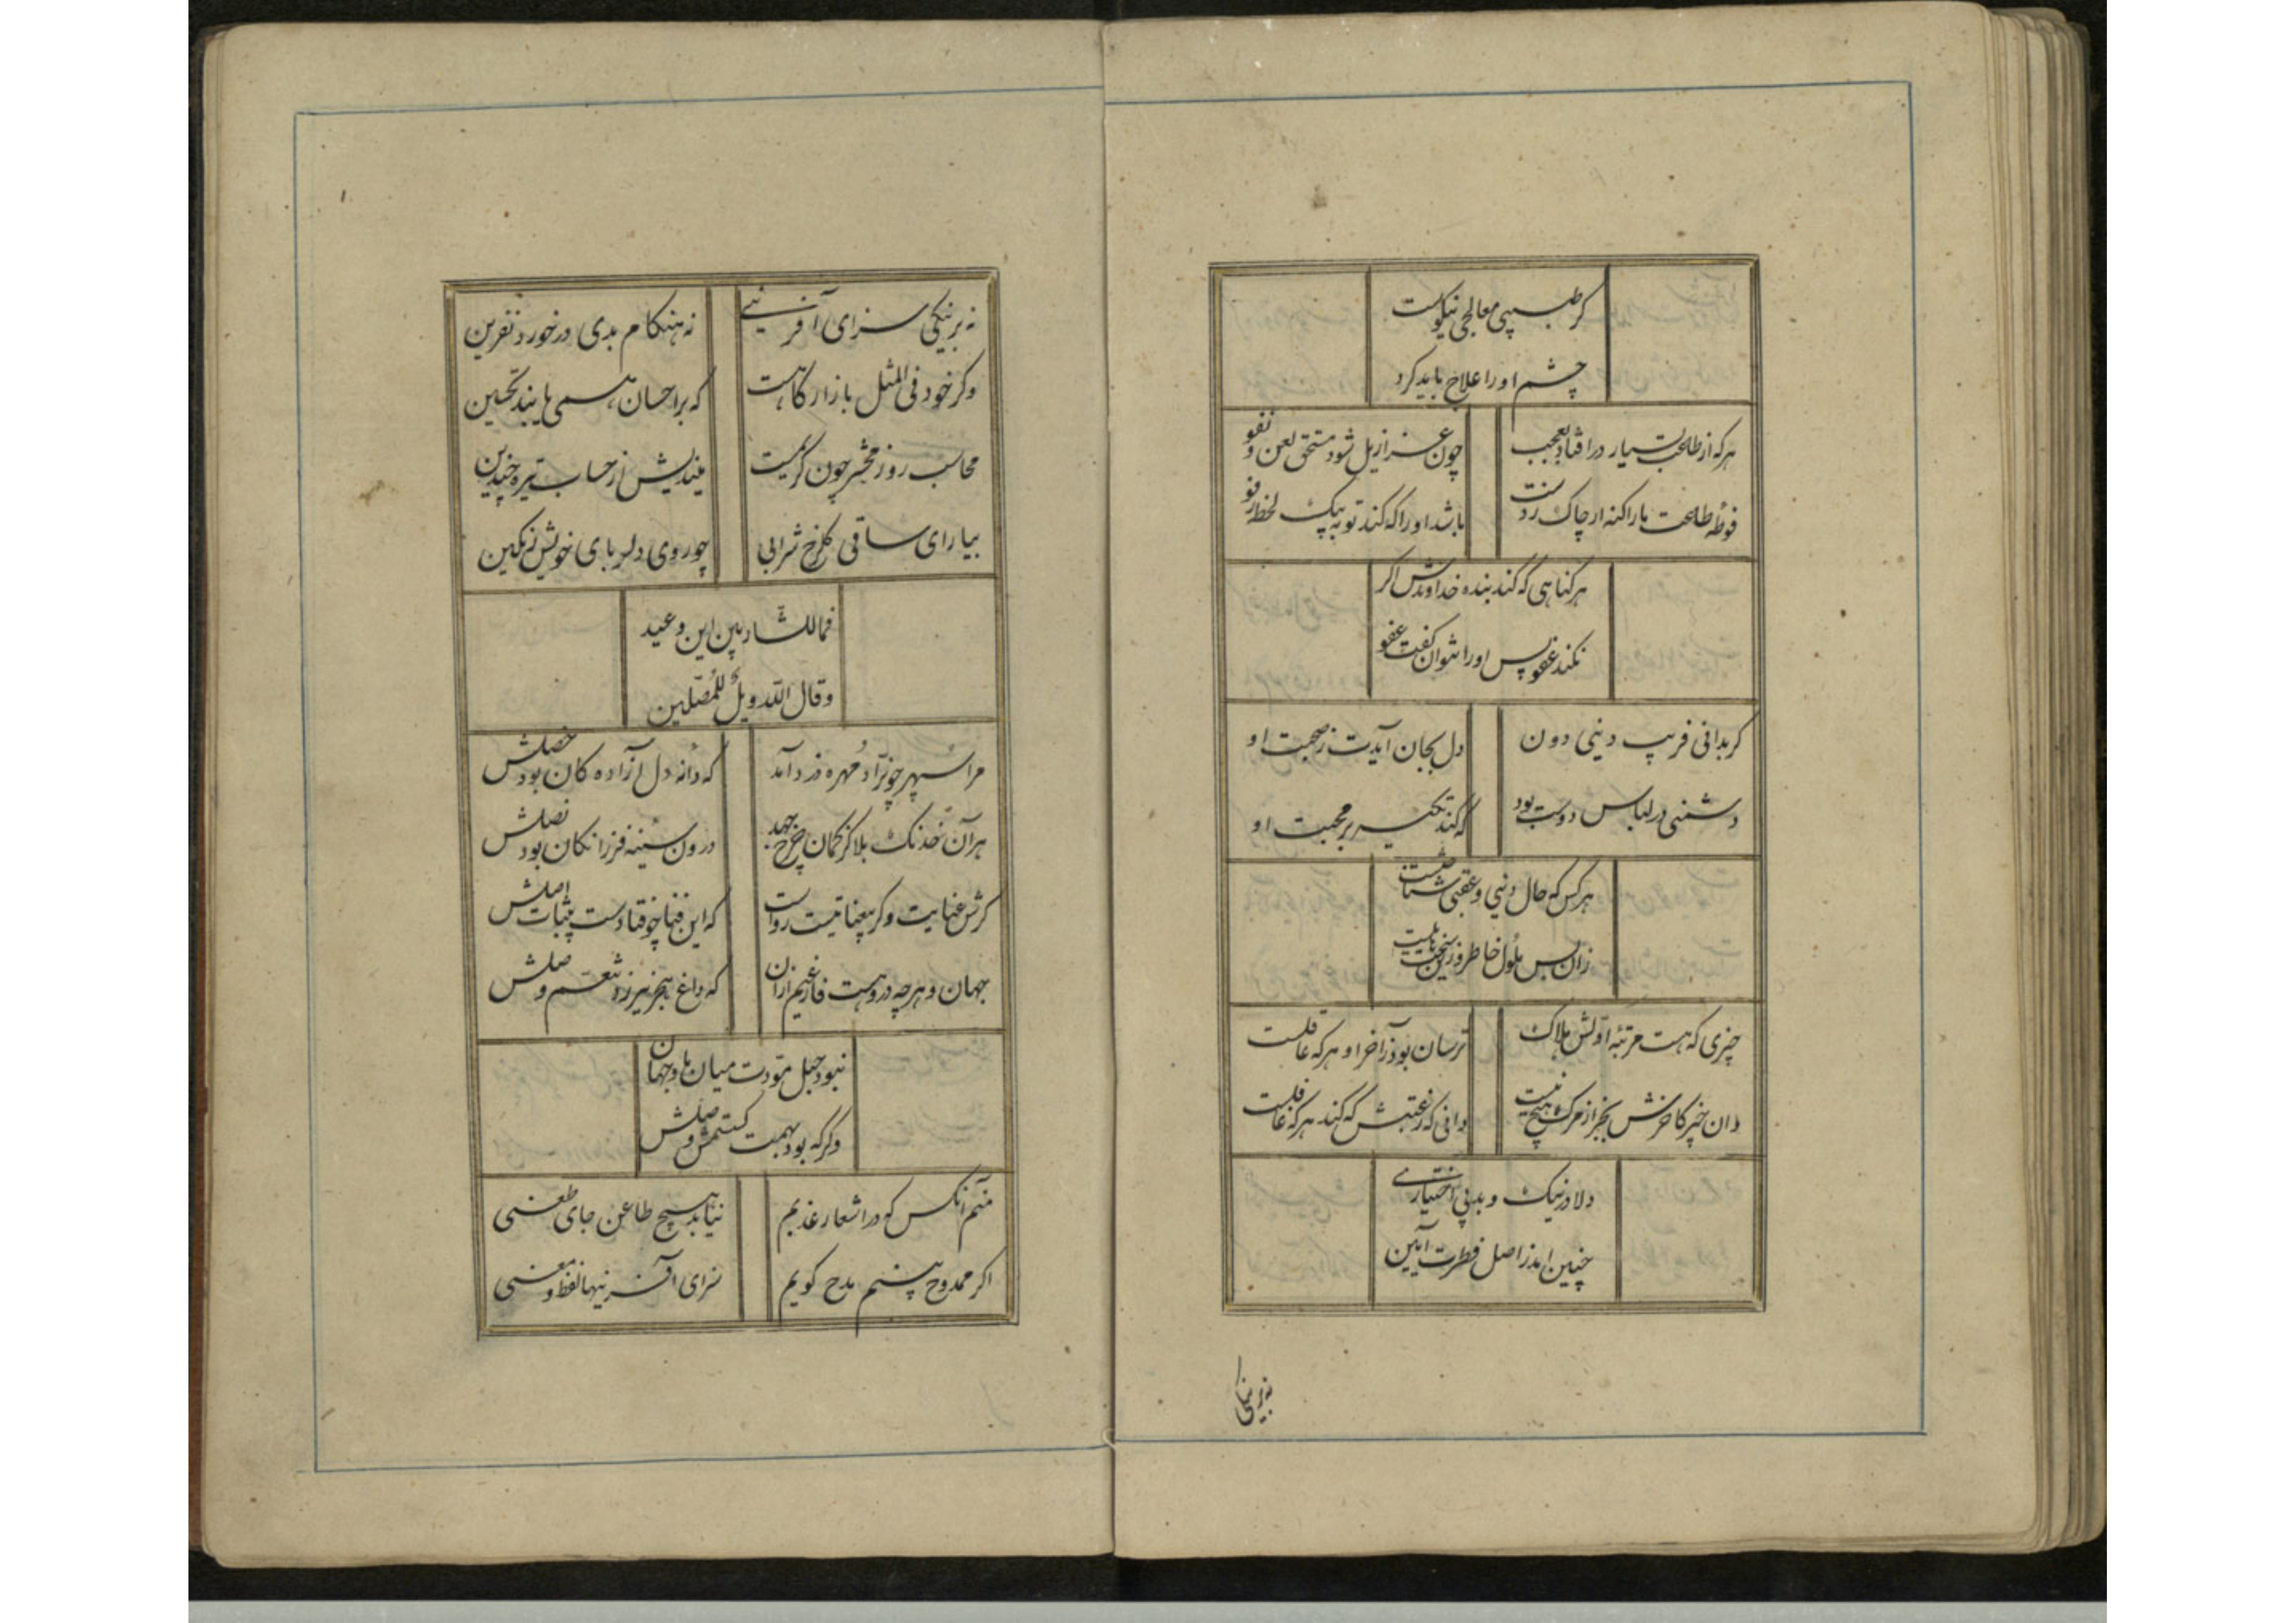 کر طبیبی معالجی نیکوست
چشم او را علاج باید کرد
هرکه از طاعت بسیار درافتاد بعجب
چون عزازیل شود مستحق لعن و نفو
فوطهٔ طاعت بار اکنه ار چاک زدست
باشد او را که کند توبه بیک لحظه رفو
هر کناهی که کند بنده خداوندش اکر
نکند عفو پس او را نتوان کفت عفو
کر بدانی فریب دینی دون
دل بجان آیدت ز صحبت او
دشمنی در لباس دوست بود
که کند تکیه بر محبت او
هرکس که حال دنیی و عقبی شناختست
زان بس ملول خاطر و زین
چیزی که هست مرتبهٔ اولش هلاک
ترسان بود ز آخر او هرکه عاقلست
دان خبر کاخرش بجز از مرک هیچ نیست
دانی که رغبتش که کند هرکه غافلست
دلا در نیک و بد بی اختیاری
چنین آمد ز اصل فطرت آیین
نه بر نیکی
نه بر نیکی سزای آفرینی
نه هنکام بدی در خورد نفرین
وکر خود فی المثل بازار کاهست
که بر احسان همی یابند تحسین
محاسب روز محشر چون کریمست
میندیش از حساب تیره چندین
بیار ای ساقی کلرخ شرابی
چو روی دلربای خویش رنکین
فما للشاربین این وعید
وقال الله ویل للمصلین
مرا سپهر چو نراد مهره درد آمد
که دانه دل آزاده کان بود خصلش
هر آن خدنک بلا کز کمان چرخ جهد
درون سینه فرزانکان بود نصلش
کرش عنایت وکر بیعنایتیست رواست
که این فنا چو فتادست بیثبات اصلش
جهان و هرچه دروهست فارغیم ازان
که داغ هجر نیرزد تنعم وصلش
نبود حبل مودت میان ما و جهان
وکر که بود بهمت کسستمش وصلش
منم آنکس که در اشعار عذبم
نیابد هیچ طاعن جای طعنی
اکر ممدوح بینم مدح کویم
سزای آفرینها لفظ و معنی